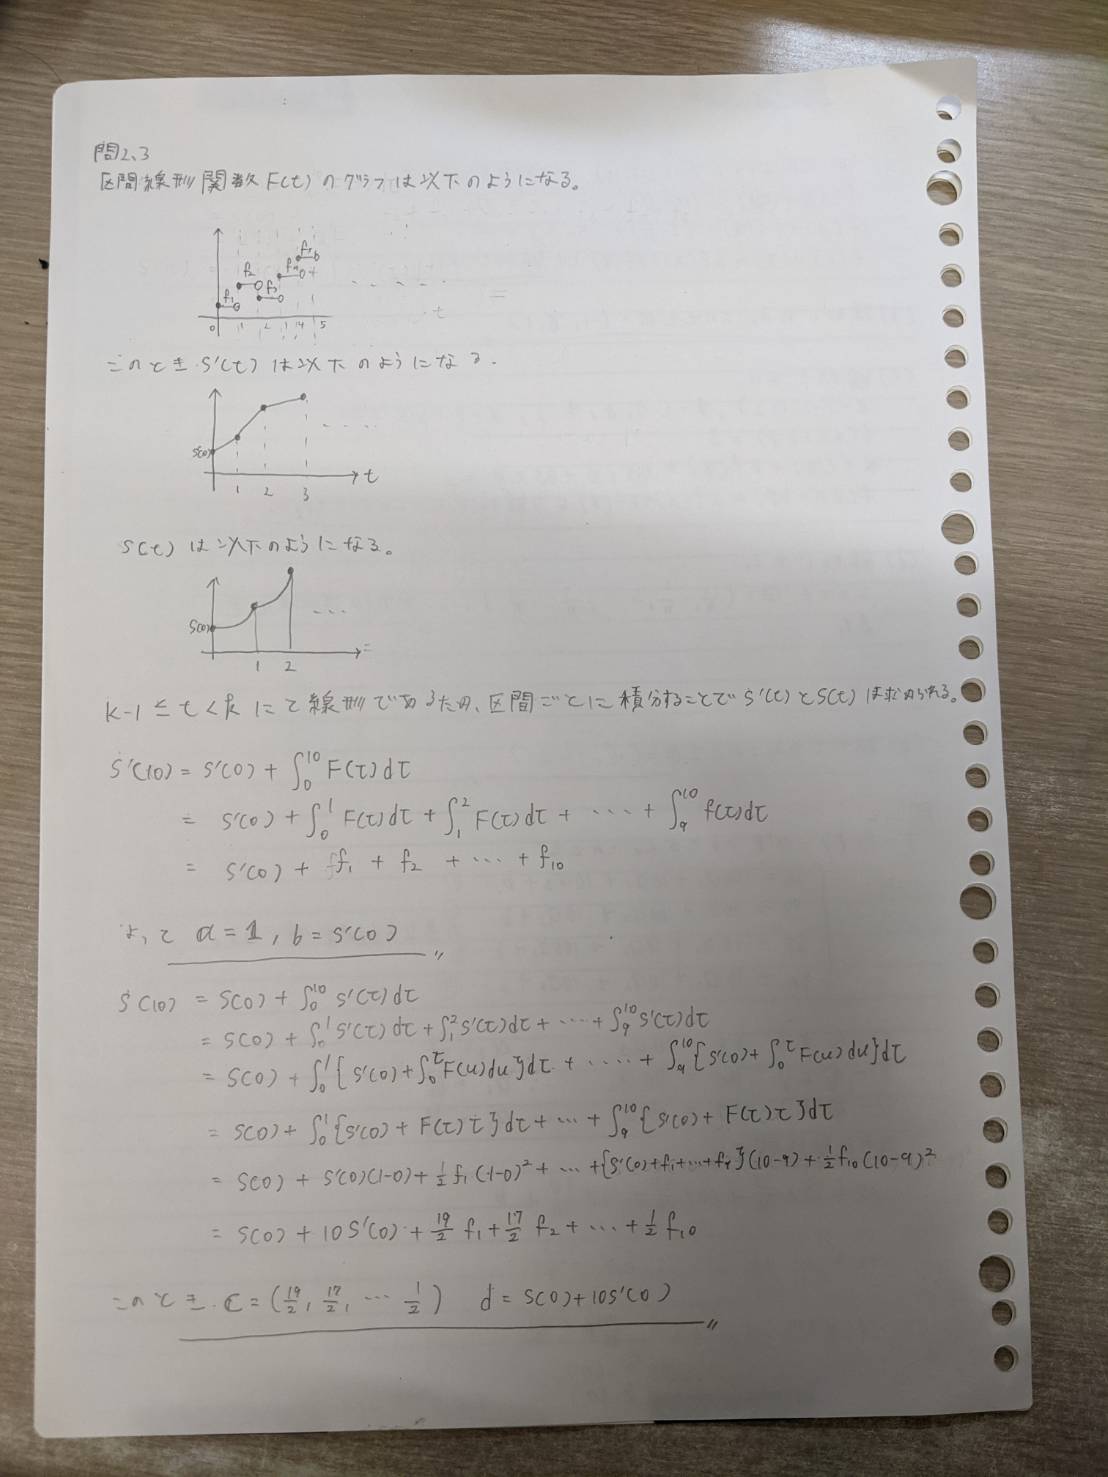 問2.3
区間線形関数F(t)のグラフは以下のようになる。
f₁ f₂ f₃ f₄ f₅
0 1 2 3 4 5 t
このとき S'(t) は以下のようになる.
S'(0)
1 2 3 t
S(t) は以下のようになる。
S(0)
1 2
k-1 ≤ t < k にて線形であるため、区間ごとに積分することで S'(t) と S(t) は求められる。
S'(10) = S'(0) + ∫₀¹⁰ F(τ)dτ
= S'(0) + ∫₀¹ F(τ)dτ + ∫₁² F(τ)dτ + ・・・ + ∫₉¹⁰ f(τ)dτ
= S'(0) + f₁ + f₂ + ・・・ + f₁₀
よって a = 1, b = S'(0)
S(10) = S(0) + ∫₀¹⁰ S'(τ)dτ
= S(0) + ∫₀¹ S'(τ)dτ + ∫₁² S'(τ)dτ + ・・・ + ∫₉¹⁰ S'(τ)dτ
= S(0) + ∫₀¹ { S'(0) + ∫₀^τ F(u)du } dτ + ・・・・・ + ∫₉¹⁰ { S'(0) + ∫₀^τ F(u)du } dτ
= S(0) + ∫₀¹ { S'(0) + F(τ)τ } dτ + ・・・ + ∫₉¹⁰ { S'(0) + F(τ)τ } dτ
= S(0) + S'(0)(1-0) + ½ f₁ (1-0)² + ・・・ + { S'(0) + f₁ + ・・・ + f₉ } (10-9) + ½ f₁₀ (10-9)²
= S(0) + 10S'(0) + 19/2 f₁ + 17/2 f₂ + ・・・ + ½ f₁₀
このとき C = (19/2, 17/2, ・・・ 1/2) d = S(0) + 10S'(0)